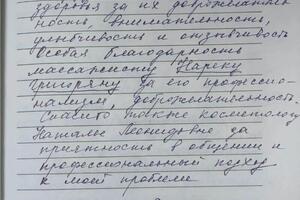 здоровья за их доброжелатель-
ность, внимательность,
улыбчивость и отзывчивость
Особая благодарность
массажисту Нареку
Григоряну за его профессио-
нализм, доброжелательность.
Спасибо также косметологу
Наталье Леонидовне за
приятность в общении и
профессиональный подход
к моей проблеме